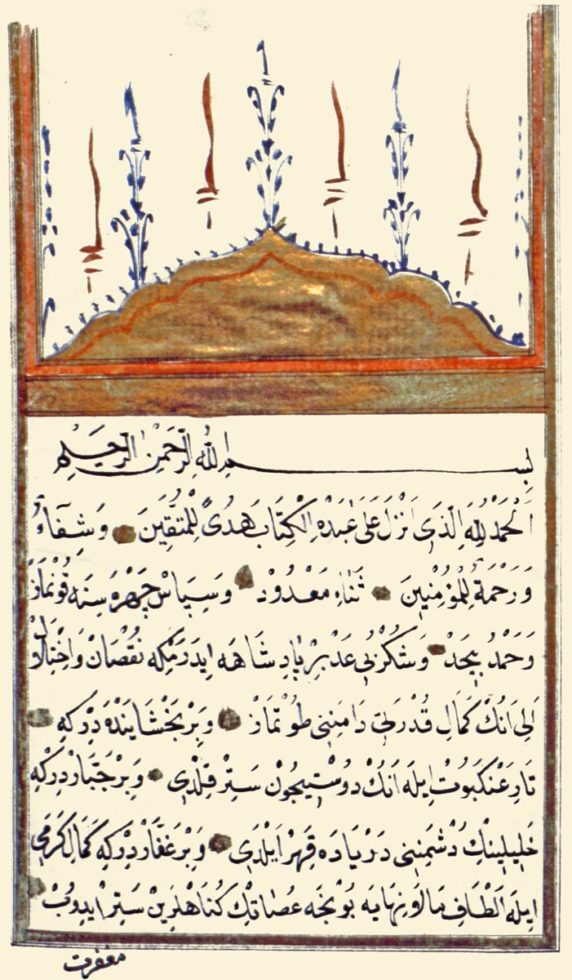 بسم الله الرحمن الرحيم
اَلْحَمْدُ لِلّٰهِ الَّذٖى اَنْزَلَ عَلٰى عَبْدِهِ الْكِتَابَ هُدًى لِلْمُتَّقٖينَ وَشِفَاءً
وَرَحْمَةً لِلْمُؤْمِنٖينَ ثَنَاءِ مَعْدُودْ وَسِپَاسْ چهره سنه قونماز
وَحَمْدُ بِيحَدْ وَشُكْرُ بٖى عَدْ بِرْ پَادِشَاهَه ايدرمكه نُقْصَانْ وَاخْتِلَالْ
اَلِى اَنُكْ كَمَالِ قُدْرَتِى دَامَنِنٖى طُوتْمَازْ وَبِرْ بَخْشَايَنْدَه دِرْكه
تَارِ عَنْكَبُوتْ اِيلَه اَنُكْ دُوسْتِيچُونْ سَتِرْ قِلْدِى وَبِرْ جَبَّارْدِرْكه
خَلٖيلِينُكْ دُشْمَنِنٖى دَرْيَادَه قَهْرْ اَيْلَدِى وَبِرْ غَفَّارْدِرْكه كَمَالِ كَرَمِى
ايله اَلْطَافِ مَالَا نِهَايَه بُونْجَه عُصَاتُكْ كُنَاهْلَرِينْ سَتِرْ اِيدُوبْ
مغفرت